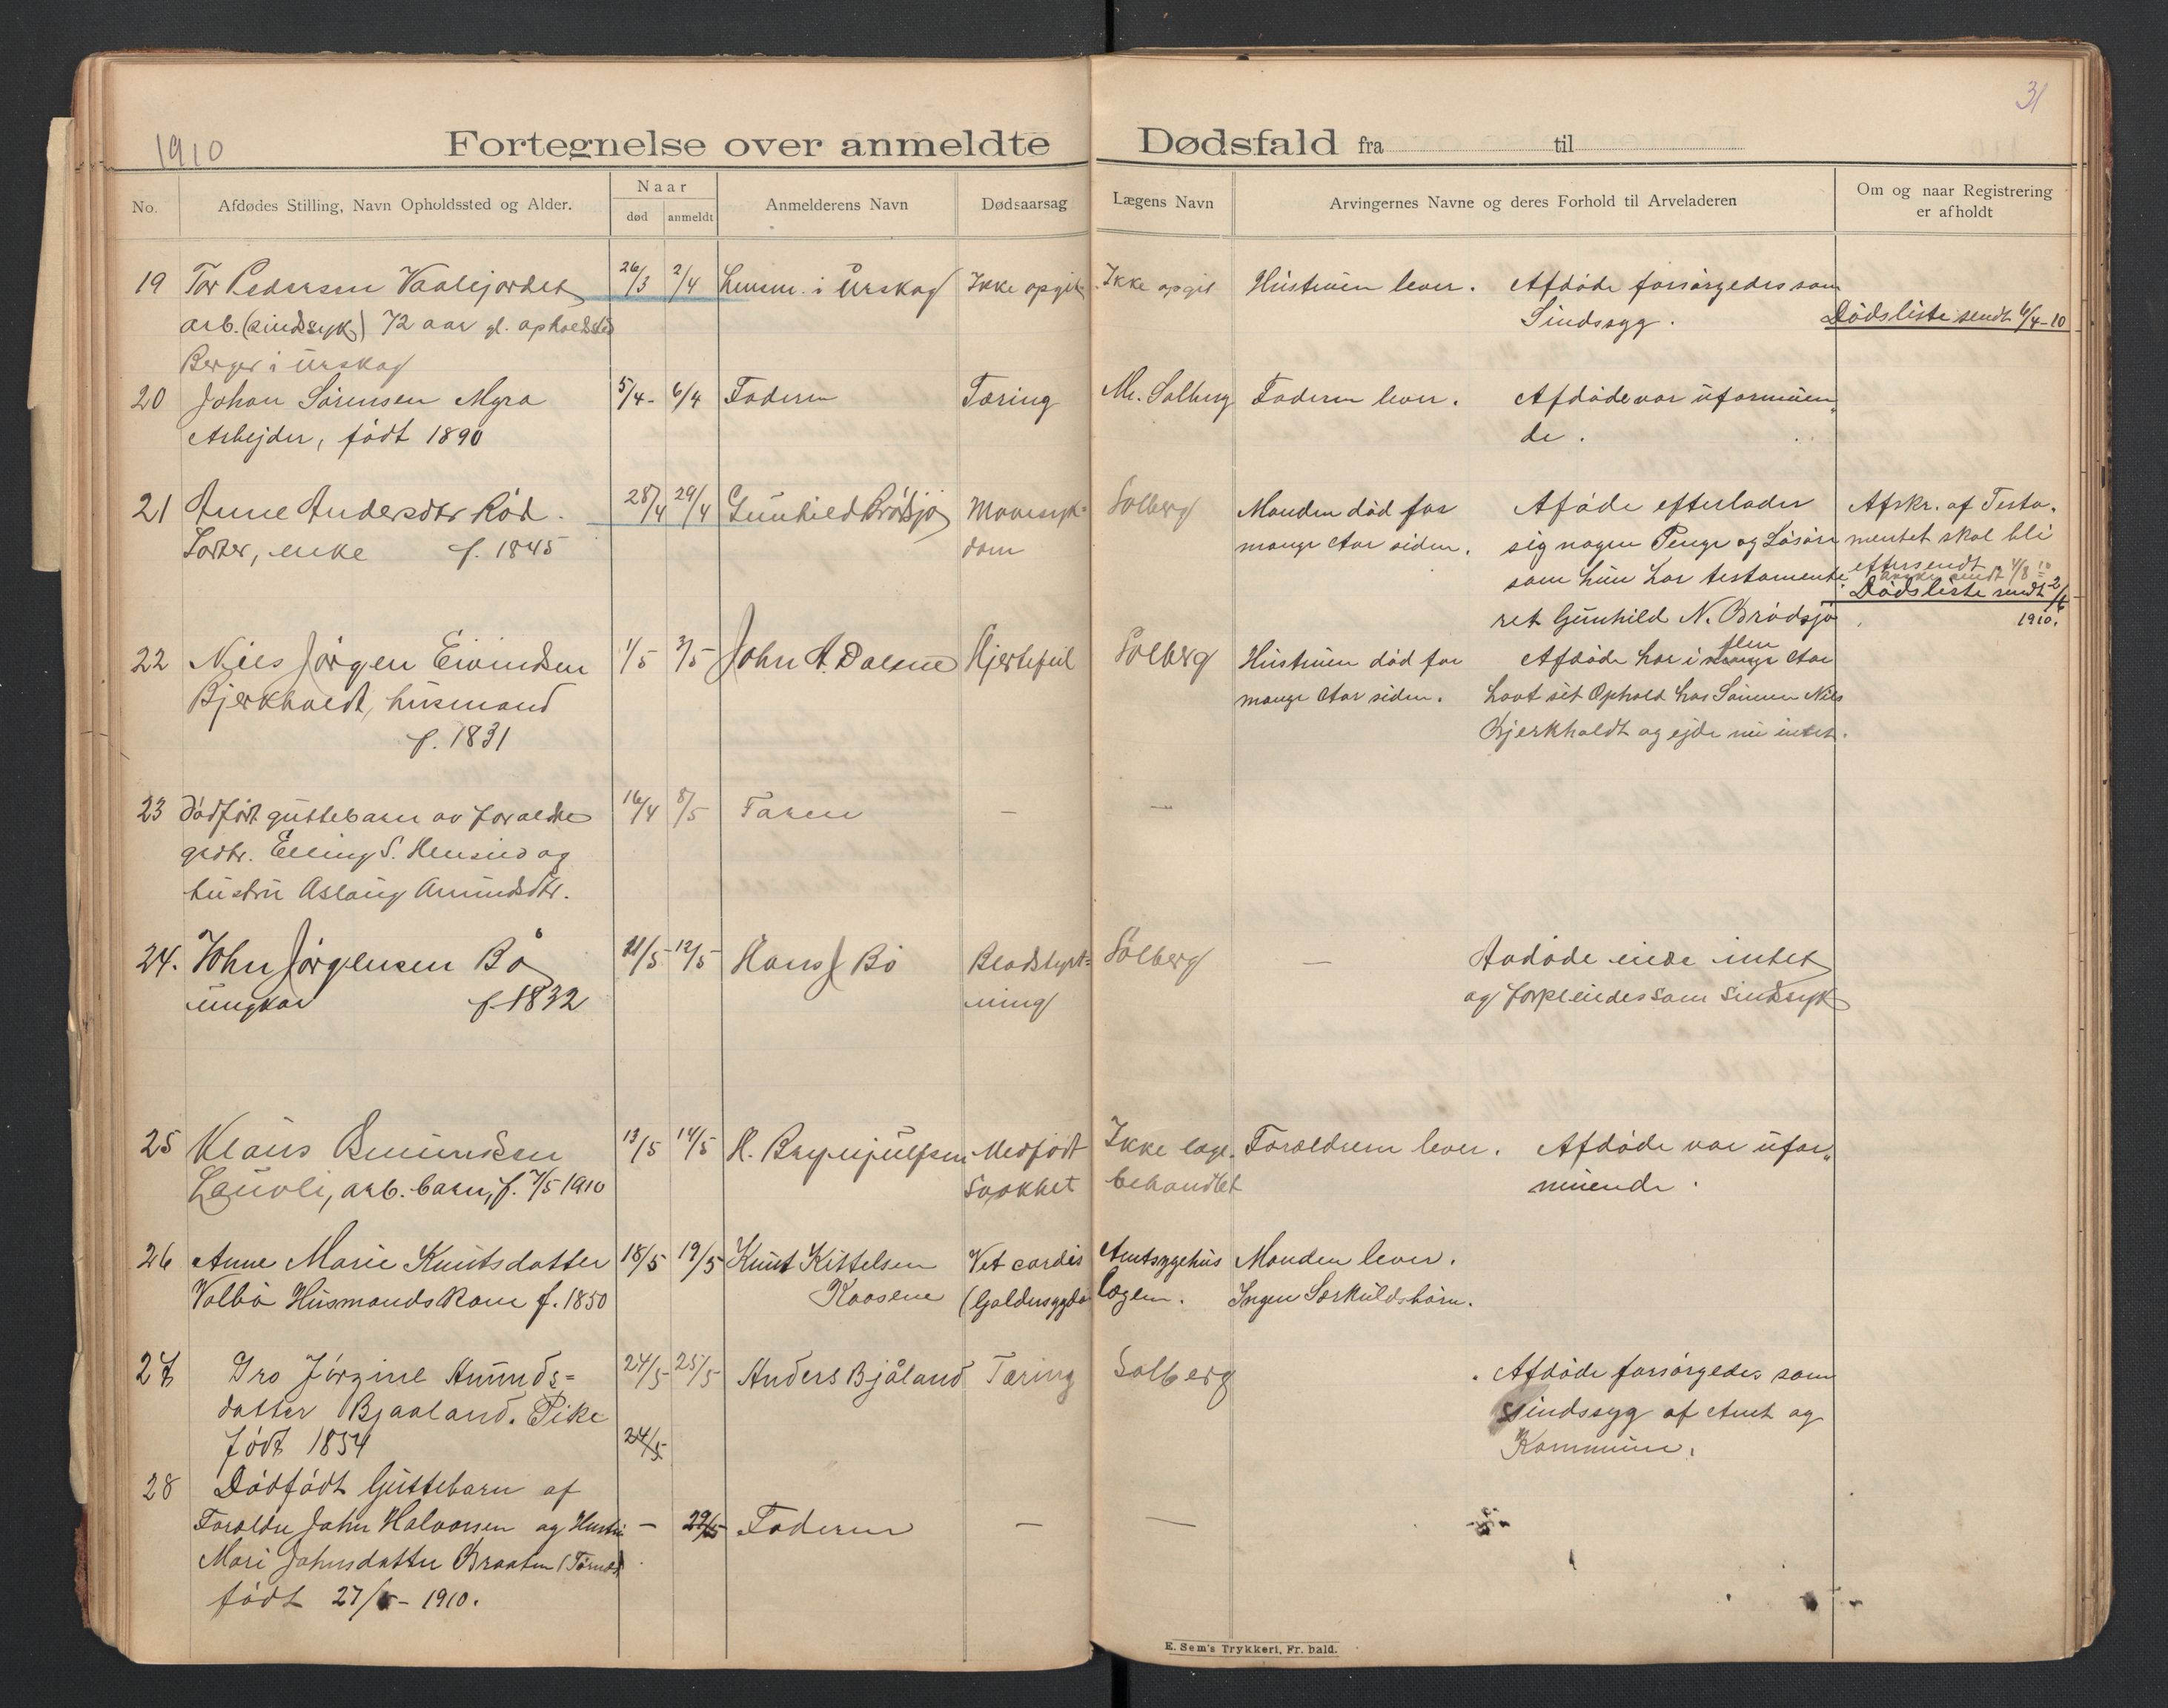 31
1910
Fortegnelse over anmeldte Dødsfald fra til
No.
Afdødes Stilling, Navn Opholdssted og Alder.
Naar
død
anmeldt
Anmelderens Navn
Dødsaarsag
Lægens Navn
Arvingernes Navne og deres Forhold til Arveladeren
Om og naar Registrering
er afholdt
19 Tor Pedersen 26/3 2/4 Lensm. i Urskog Ikke opgit Ikke opgit Hustruen lever. Afdøde forsørgedes som
arb. (sindssyk) 72 aar gl. opholdssted Sindssyg. Dødsliste sendt 6/4-10
Berger i Urskog
20 Johan Sørensen Myra 5/4- 6/4 Faderen Tæring Solberg Faderen lever. Afdøde var uformuen„
Arbejder, født 1890 de.
21 Anne Andersdtr Rød. 28/4 29/4 Gunhild Brødsjø Mavesyk- Solberg Manden død for Afdøde efterlader Afskr. af Testa-
enke f. 1845 dom mange Aar siden. sig nogen Penge og Løsøre mentet skal bli
som hun har testamente- eftersendt 4/8 10
ret Gunhild N. Brødsjø. Dødsliste sendt 2/6
1910.
22 Niels Jørgen Eivindsen 1/5 3/5 John A. Dalene Hjertefeil Solberg Hustruen død for Afdøde har i mange flere Aar
Bjerkholdt, husmand mange Aar siden. havt sit Ophold hos Sønnen Nils
f. 1831 Bjerkholdt og ejde nu intet.
23 Dødfødt guttebarn av forældre 16/4 8/5 Faren — —
grdbr. Elling S. og
hustru Aslaug Amundsdtr.
24. John Jørgensen Bø 11/5 12/5 Hans J Bø Blodstyrt= Solberg — Avdøde eiede intet
ungkar f. 1832 ning og forpleiedes som sindssyk
25 Klaus 13/5 14/5 H. Brynjulfsen Medfødt Ikke læge- Forældrene lever. Afdøde var ufor„
Lauvli, arb. barn, f. 7/5 1910 svakhet behandlet muende.
26 Anne Marie Knutsdatter 18/5 19/5 Knut Kittelsen Vet cordis Amtsygehus Manden lever.
Valbø Husmandskone f. 1850 Kaasene lægen. Ingen Særkuldsbørn.
27 Gro Jørgine Amunds= 24/5 25/5 Anders Bjåland Tæring Solberg Afdøde forsørgedes som
datter Bjaaland. Pike Sindssyg af Amt og
født 1854 24/5 Kommune.
28 Dødfødt Guttebarn af
Forældre John Halvorsen og Hustru — 29/5 Faderen — —
Mari Johnsdatter Braaten
født 27/5 - 1910.
E. Sem's Trykkeri, Fr. hald.